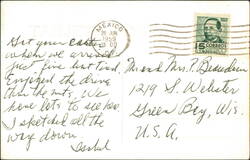 Got your cards
when we arrived
just five but tired.
Enjoyed the drive
thru the mts. We
have lots to see too.
I sketched all the
way down.
Isabel
MEXICO
1959
CORREOS
Mr and Mrs P. Beaudoin
1219 S. Webster
Green Bay, Wis.
U.S.A.